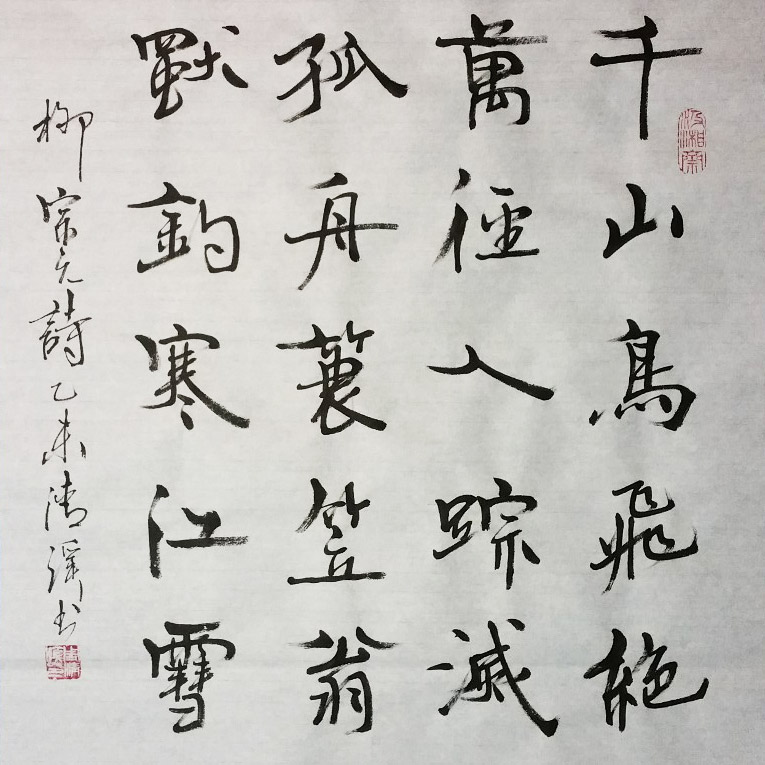 千山鳥飛絶
萬徑人踪滅
孤舟簑笠翁
獨釣寒江雪
柳宗元詩乙未清书